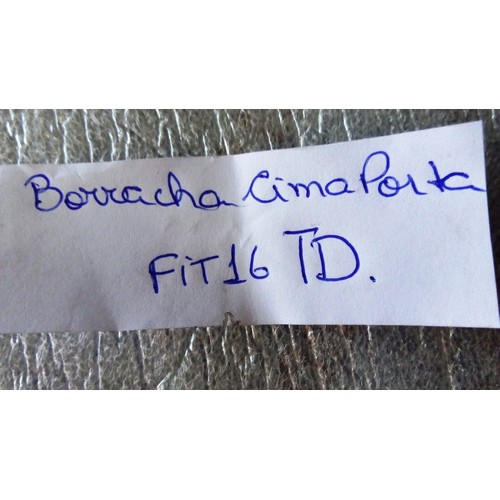 Borracha Cima Porta
FiT16 TD.